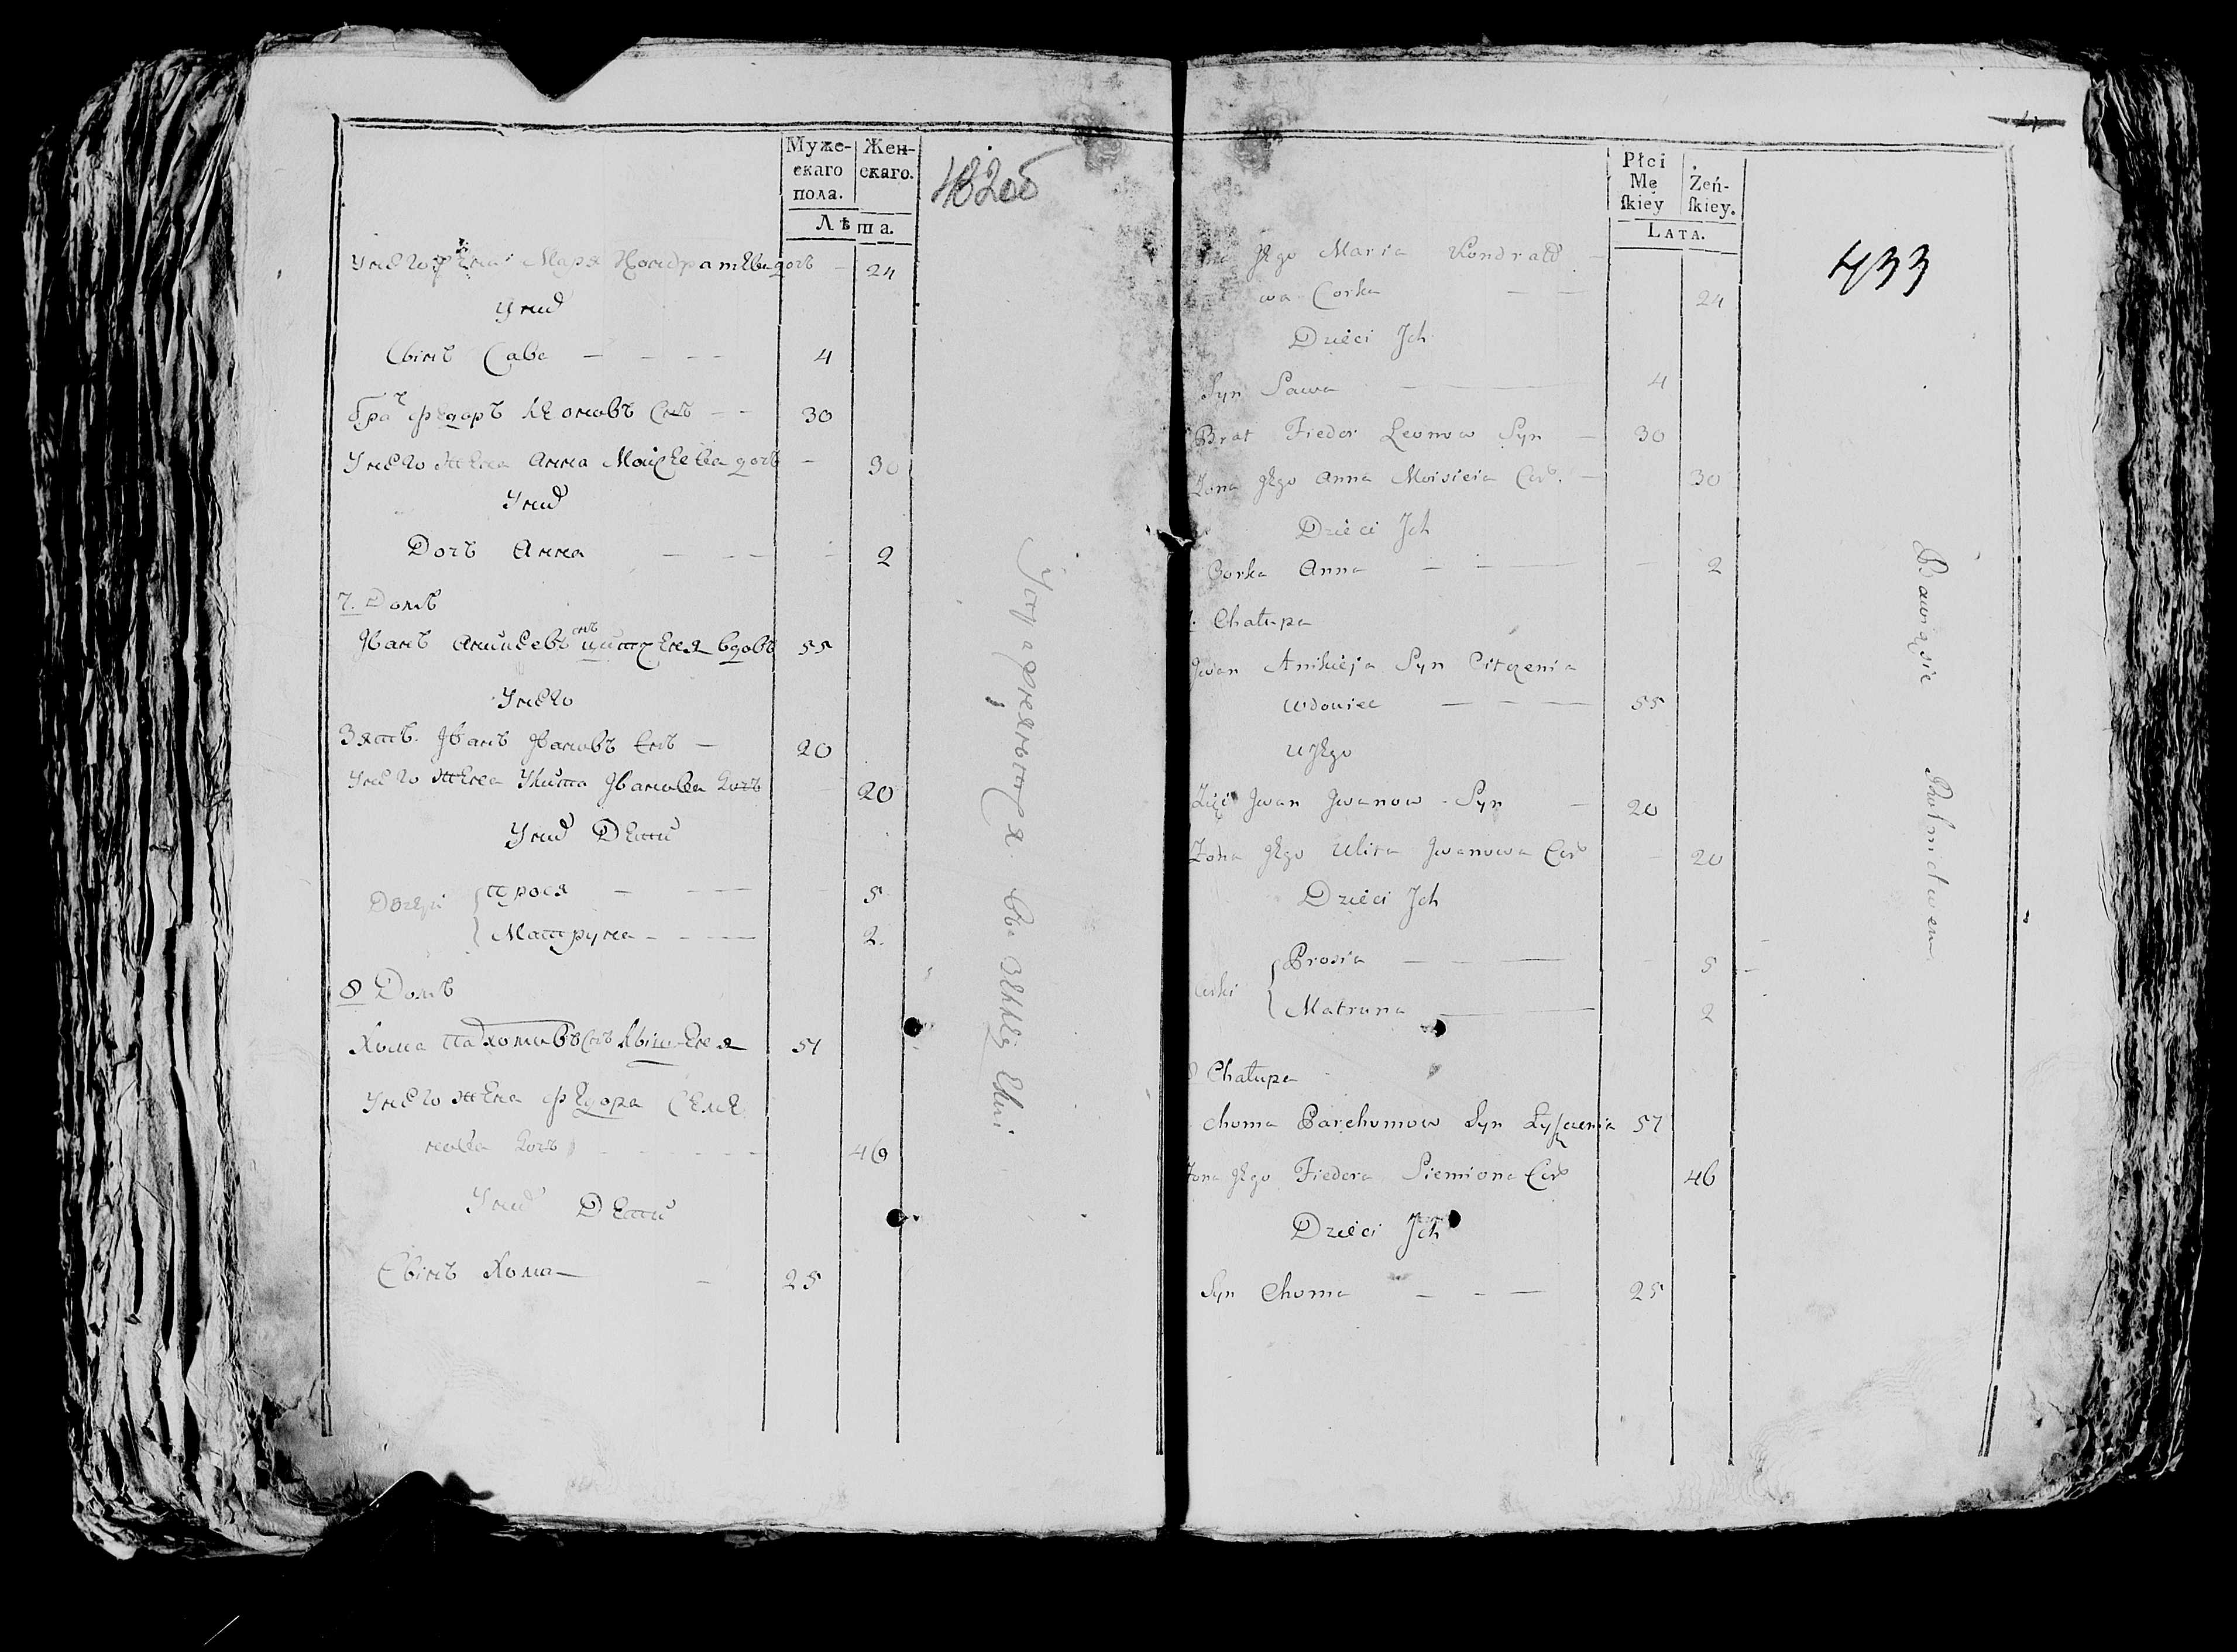 Муже-
скаго
пола.
Жен-
скаго.
Лѣта.
432об
Унего жена Маря Кондратева дочь — 24
Уних
Сынъ Сава — — — — 4
Братъ Федоръ Леоновъ снъ — — 30
Унего жена Анна Моисеева дочь — 30
Уних
Дочъ Анна — — — 2
7. Домъ
Иванъ Аникеевъ снъ вдовъ 55
Унего
Зять Иванъ Ивановъ снъ — 20
Унего жена Улита Иванова дочъ 20
Уних Дети
Дочери
Прося — — — 5
Матруна — — — — 2
8 Домъ
Хома снъ 57
Унего жена Федора Семе
нова дочъ — — — — 46
Уних Дети
Сынъ Хома — — 25
Упражняются въ
Płci
Mę
ſkiey
Żeń-
ſkiey.
LATA.
433
Jego Maria Kondrato
wa Corka — — 24
Dzieci Jch
Syn Sawa — — 4
Brat Fiedor Leonow Syn — 30
Zona Jego Anna Moisieia Cor. — 30
Dzieci Jch
Corka Anna — — — 2
Chałupa
Jwan Anikieja Syn Citczenia
Wdowiec — — — 55
U Jego
Zięć Jwan Jwanow Syn — 20
Zona Jego Ulita Jwanowa Cor 20
Dzieci Jch
Corki
Prosia — — — 5
Matruna — — 2
8 Chałupa
Choma Parchomow Syn Łyſzczenia 57
Zona Jego Fiedora Siemiona Cor 46
Dzieci Jch
Syn Choma — — — 25
Bawiąsie Rolnictwem